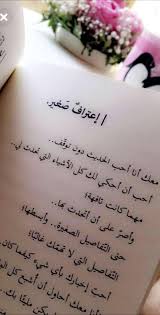 | إعترافٌ صَغير.
معك أنا أحب الحديث دون توقف..
أحب أن أحكي لك كل الأشياء التي تحدث لي..
مهما كانت تافهة؛
وأصر على أن أتحدث بها..
حتى التفاصيل الصغيرة.. وأبسطها؛
التفاصيل التي لا تهمك غالبًا؛
أحب إخبارك بأي شيء كيفما كان
معك أنا أحاول أن أشبع كل